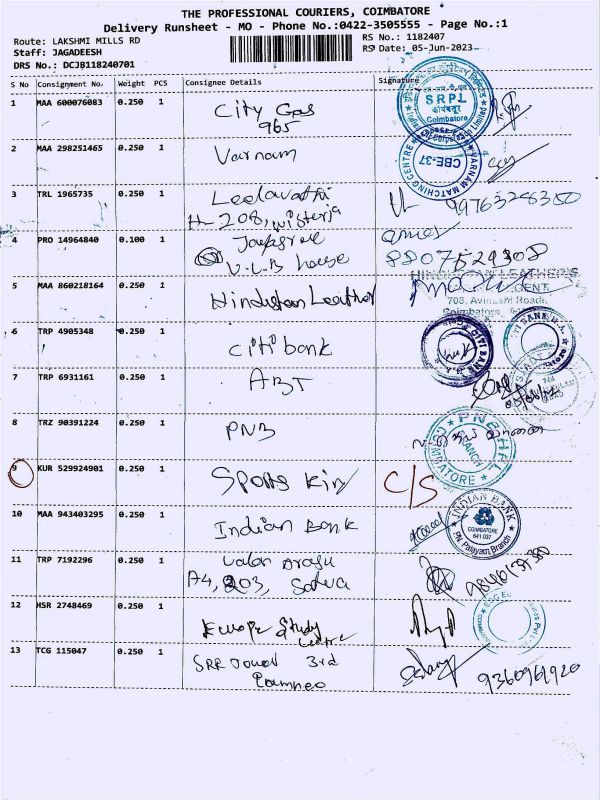 THE PROFESSIONAL COURIERS, COIMBATORE
Delivery Runsheet - MO - Phone No.:0422-3505555 - Page No.:1
Route: LAKSHMI MILLS RD RS No.: 1182407
Staff: JAGADEESH RS Date: 05-Jun-2023
DRS No.: DCJB118240701
S No Consignment No. Weight PCS Consignee Details Signature
1 MAA 600076083 0.250 1 City Gas
965
SRPL
Coimbatore
2 MAA 298251465 0.250 1 Varnam
VARNAM MATCHING CENTRE
CBE-37
3 TRL 1965735 0.250 1 Leelavathi
H-208, wisteria
4 PRO 14964840 0.100 1
V.L.B house
8807529308
5 MAA 860218164 0.250 1 Hindustan Leather
HINDUSTAN LEATHERS
703, Avinashi Road,
Coimbatore
6 TRP 4905348 0.250 1 Citi bank
CITI BANK N.A.
7 TRP 6931161 0.250 1 ABT
8 TRZ 90391224 0.250 1 PNB
PNB HFL
COIMBATORE
9 KUR 529924901 0.250 1 Sports King C/S
10 MAA 943403295 0.250 1 Indian Bank
INDIAN BANK
COIMBATORE
641 037
PN Palayam Branch
11 TRP 7192296 0.250 1
A4, 203,
12 HSR 2748469 0.250 1 Europe Study
Centre
13 TCG 115047 0.250 1 SRR Tower 3rd
9360961920